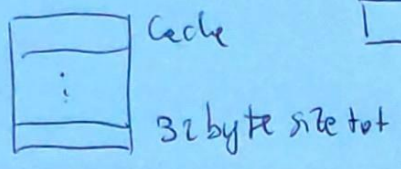 Cache
32 byte size tot